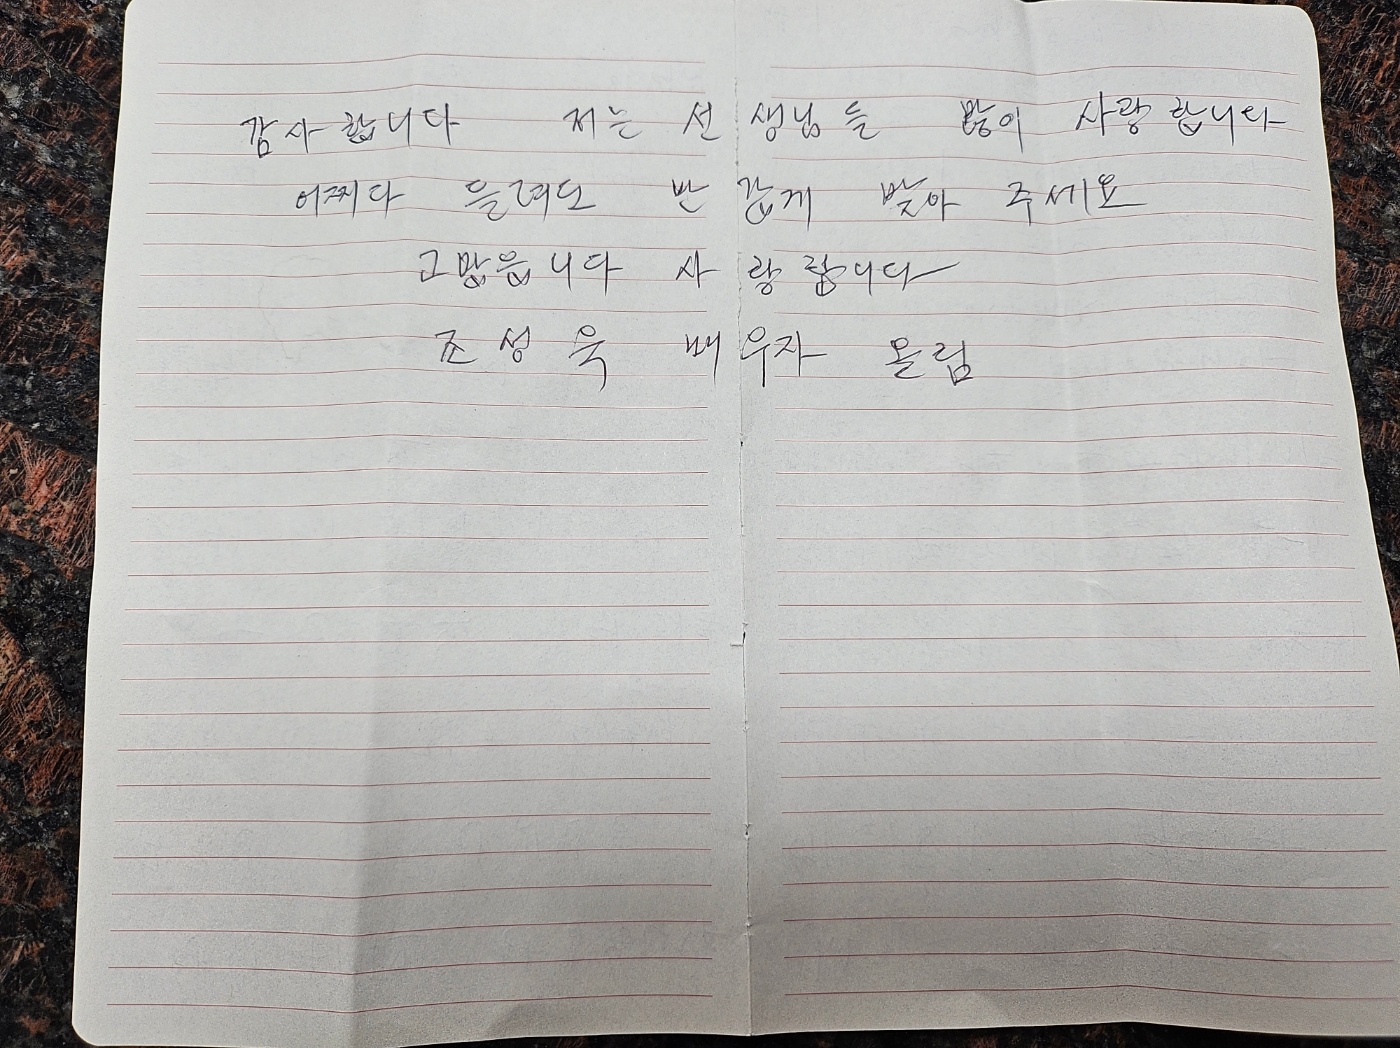 감사합니다 저는 선생님들 많이 사랑합니다
어찌다 들려도 반갑게 받아 주세요
고맙읍니다 사랑함니다
조성욱 배우자 올림